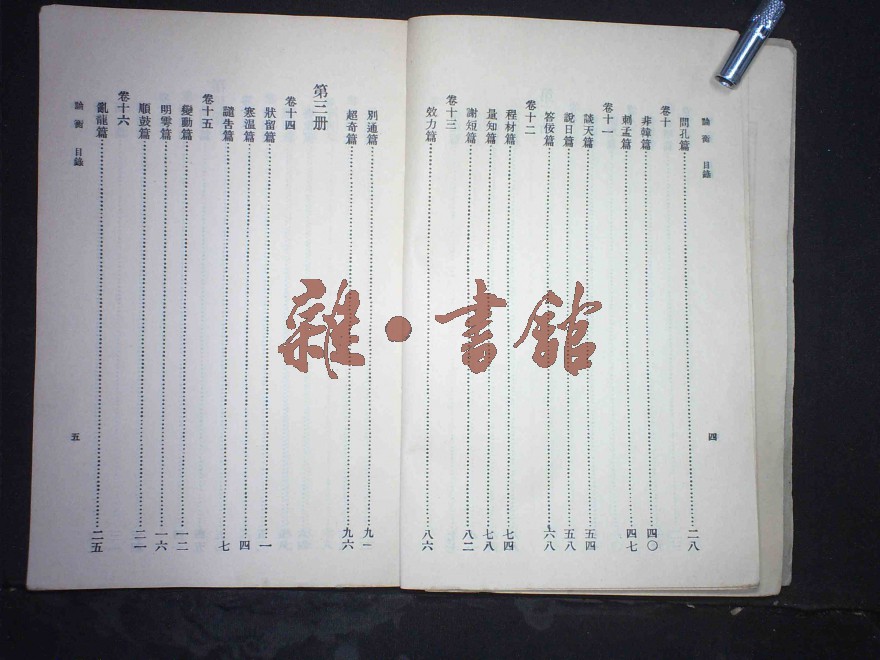 論衡 目錄
問孔篇 二八
卷十
非韓篇 四〇
刺孟篇 四七
卷十一
談天篇 五四
說日篇 五八
答佞篇 六八
卷十二
程材篇 七四
量知篇 七八
謝短篇 八二
卷十三
效力篇 八六
四
別通篇 九一
超奇篇 九六
第三册
卷十四
狀留篇 一
寒溫篇 四
譴告篇 七
卷十五
變動篇 一二
明雩篇 一六
順鼓篇 二一
卷十六
亂龍篇 二五
論衡 目錄
五
雜·書館